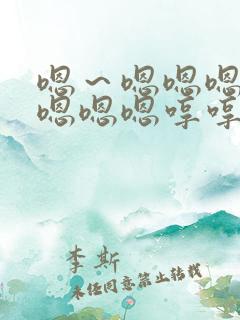 嗯～嗯嗯嗯
嗯嗯嗯哼哼
李斯
未经同意禁止转载